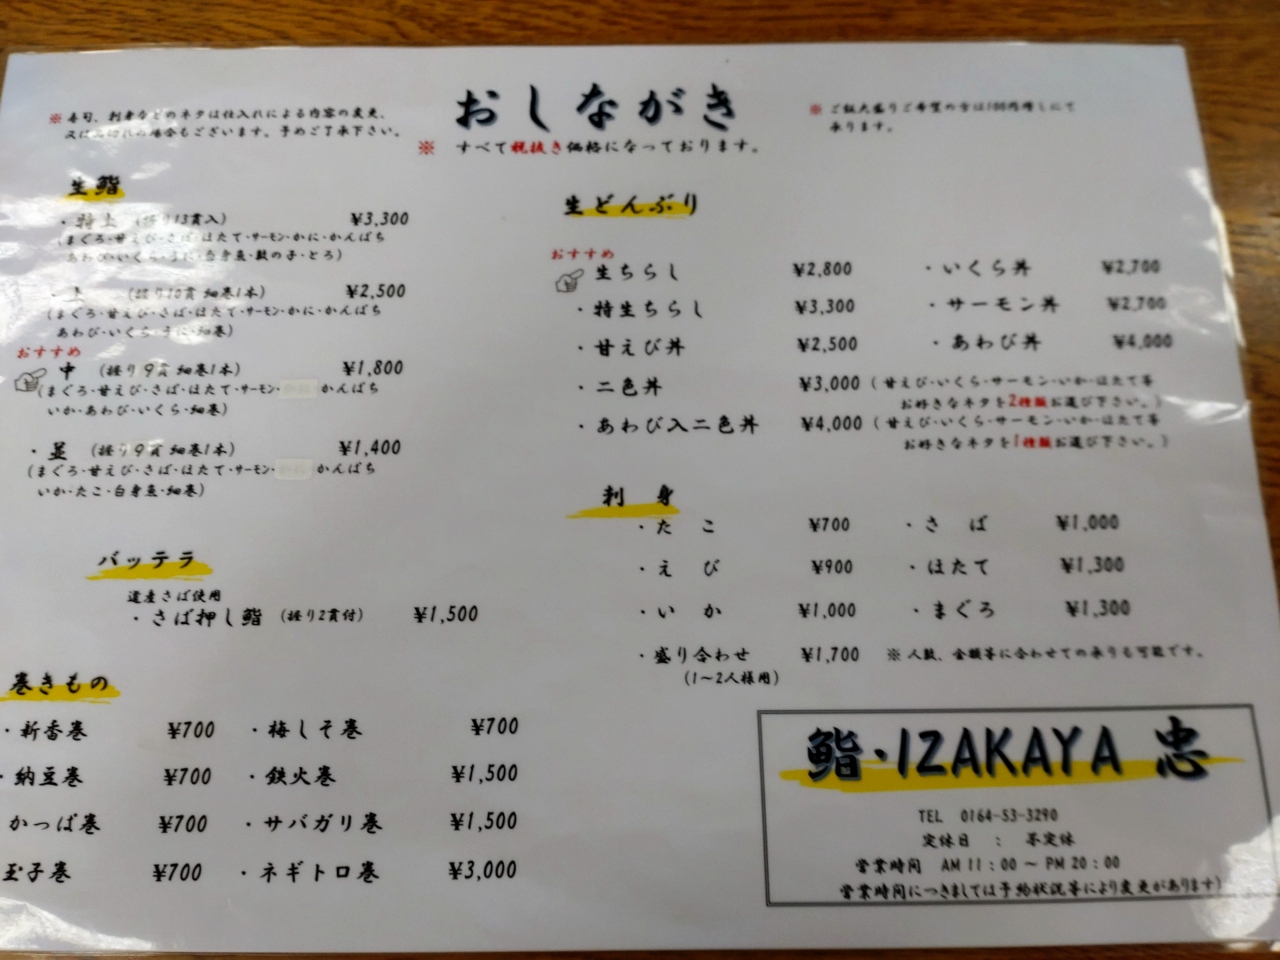 おしながき
※寿司、刺身などのネタは仕入れによる内容の変更、
又は品切れの場合もございます。予めご了承下さい。
※ すべて税抜き価格になっております。
※ご飯大盛りご希望の方は100円増しにて
承ります。
生鮨
・特上 (握り13貫入) ¥3,300
(まぐろ・甘えび・さば・ほたて・サーモン・かに・かんぱち
あわび・いくら・うに・白身魚・数の子・とろ)
・上 (握り10貫 細巻1本) ¥2,500
(まぐろ・甘えび・さば・ほたて・サーモン・かに・かんぱち
あわび・いくら・うに・細巻)
おすすめ
中 (握り9貫 細巻1本) ¥1,800
(まぐろ・甘えび・さば・ほたて・サーモン・ かんぱち
いか・あわび・いくら・細巻)
・並 (握り9貫 細巻1本) ¥1,400
(まぐろ・甘えび・さば・ほたて・サーモン・ かんぱち
いか・たこ・白身魚・細巻)
バッテラ
道産さば使用
・さば押し鮨 (握り2貫付) ¥1,500
巻きもの
・新香巻 ¥700 ・梅しそ巻 ¥700
・納豆巻 ¥700 ・鉄火巻 ¥1,500
かっぱ巻 ¥700 ・サバガリ巻 ¥1,500
玉子巻 ¥700 ・ネギトロ巻 ¥3,000
生どんぶり
おすすめ
生ちらし ¥2,800 ・いくら丼 ¥2,700
・特生ちらし ¥3,300 ・サーモン丼 ¥2,700
・甘えび丼 ¥2,500 ・あわび丼 ¥4,000
・二色丼 ¥3,000 (甘えび・いくら・サーモン・いか・ほたて等
お好きなネタを2種類お選び下さい。)
・あわび入二色丼 ¥4,000 (甘えび・いくら・サーモン・いか・ほたて等
お好きなネタを1種類お選び下さい。)
刺 身
・たこ ¥700 ・さば ¥1,000
・えび ¥900 ・ほたて ¥1,300
・いか ¥1,000 ・まぐろ ¥1,300
・盛り合わせ ¥1,700 ※人数、金額等に合わせての承りも可能です。
(1〜2人様用)
鮨・IZAKAYA 忠
TEL 0164-53-3290
定休日 : 不定休
営業時間 AM 11:00 〜 PM 20:00
営業時間につきましては予約状況等により変更があります)